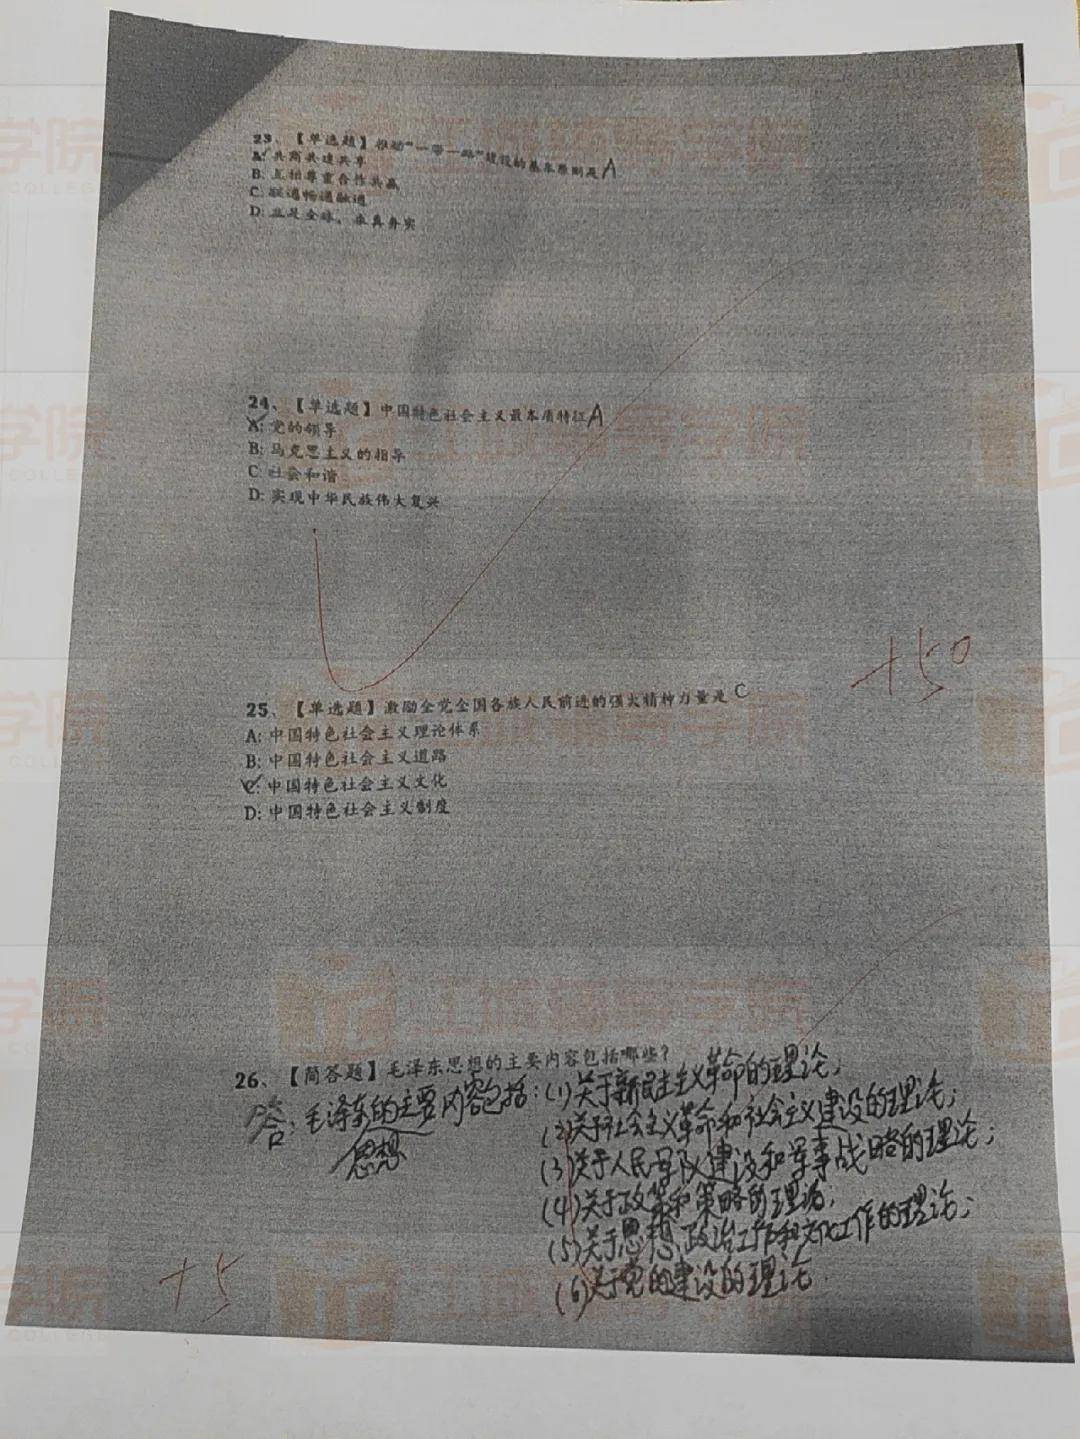 23、【单选题】推动"一带一路"建设的基本原则是 A
A: 共商共建共享
B: 互相尊重合作共赢
C: 联通畅通融通
D: 立足全球,求真务实
24、【单选题】中国特色社会主义最本质特征 A
A: 党的领导
B: 马克思主义的指导
C: 社会和谐
D: 实现中华民族伟大复兴
25、【单选题】激励全党全国各族人民前进的强大精神力量是 C
A: 中国特色社会主义理论体系
B: 中国特色社会主义道路
C: 中国特色社会主义文化
D: 中国特色社会主义制度
+50
26、【简答题】毛泽东思想的主要内容包括哪些?
答: 毛泽东的主要内容包括: (1)关于新民主主义革命的理论;
思想
(2)关于社会主义革命和社会主义建设的理论;
(3)关于人民军队建设和军事战略的理论;
(4)关于政策和策略的理论;
(5)关于思想、政治工作和文化工作的理论;
(6)关于党的建设的理论.
+5
学院
COLLEGE